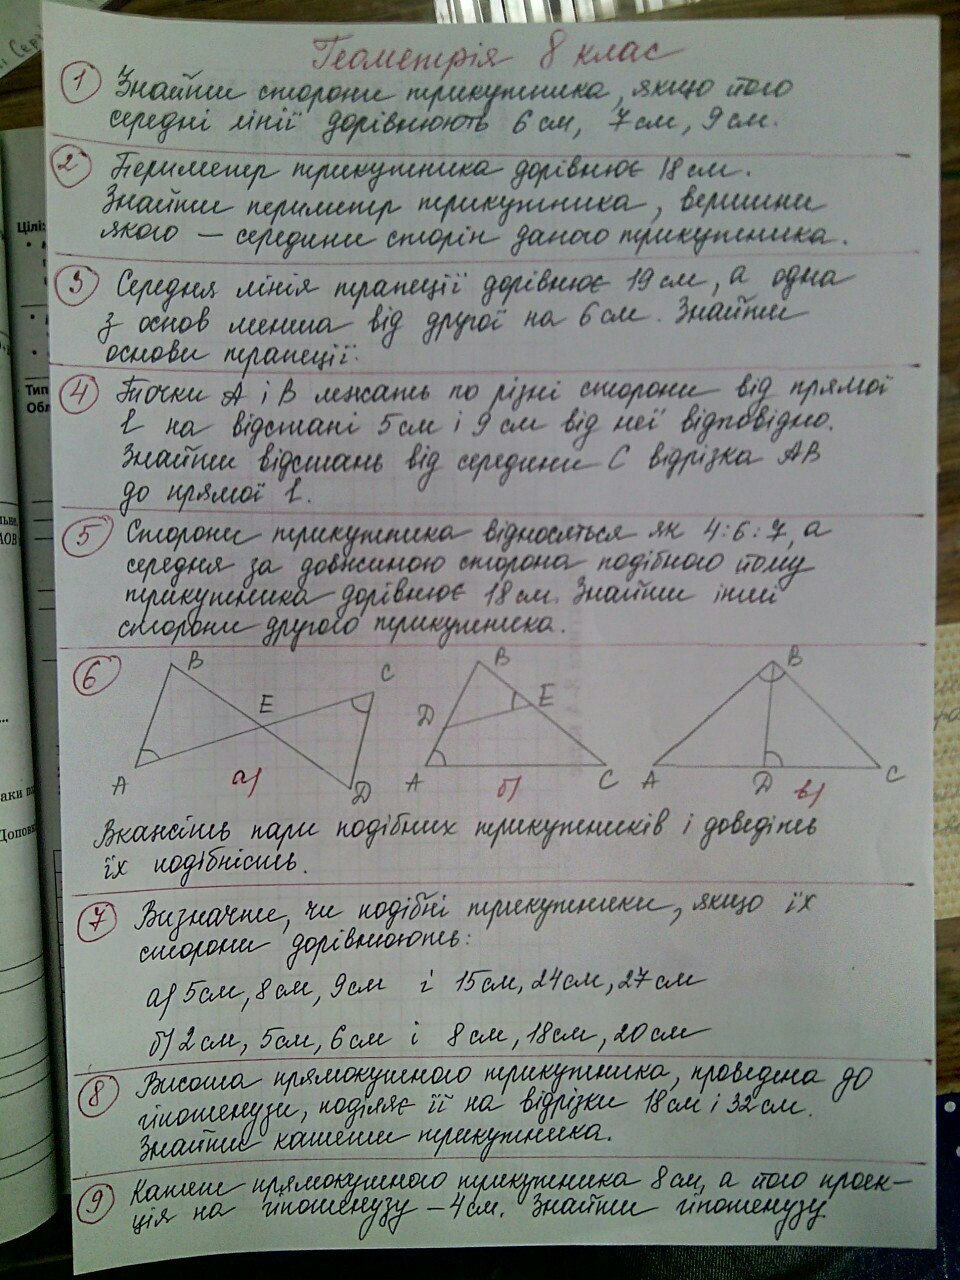 і Сер
Геометрія 8 клас
1 Знайти сторони трикутника, якщо його
середні лінії дорівнюють 6 см, 7 см, 9 см.
2 Периметр трикутника дорівнює 18 см.
Знайти периметр трикутника, вершини
якого – середини сторін даного трикутника.
3 Середня лінія трапеції дорівнює 19 см, а одна
з основ менша від другої на 6 см. Знайти
основи трапеції.
4 Точки А і В лежать по різні сторони від прямої
l на відстані 5 см і 9 см від неї відповідно.
Знайти відстань від середини С відрізка АВ
до прямої l.
5 Сторони трикутника відносяться як 4:6:7, а
середня за довжиною сторона подібного йому
трикутника дорівнює 18 см. Знайти інші
сторони другого трикутника.
6
B E C A D а)
B D E A C б)
B A D C в)
Вкажіть пари подібних трикутників і доведіть
їх подібність.
7 Визначте, чи подібні трикутники, якщо їх
сторони дорівнюють:
а) 5 см, 8 см, 9 см і 15 см, 24 см, 27 см
б) 2 см, 5 см, 6 см і 8 см, 18 см, 20 см
8 Висота прямокутного трикутника, проведена до
гіпотенузи, поділяє її на відрізки 18 см і 32 см.
Знайти катети трикутника.
9 Катет прямокутного трикутника 8 см, а його проек-
ція на гіпотенузу – 4 см. Знайти гіпотенузу
Цілі:
Тип
Обл